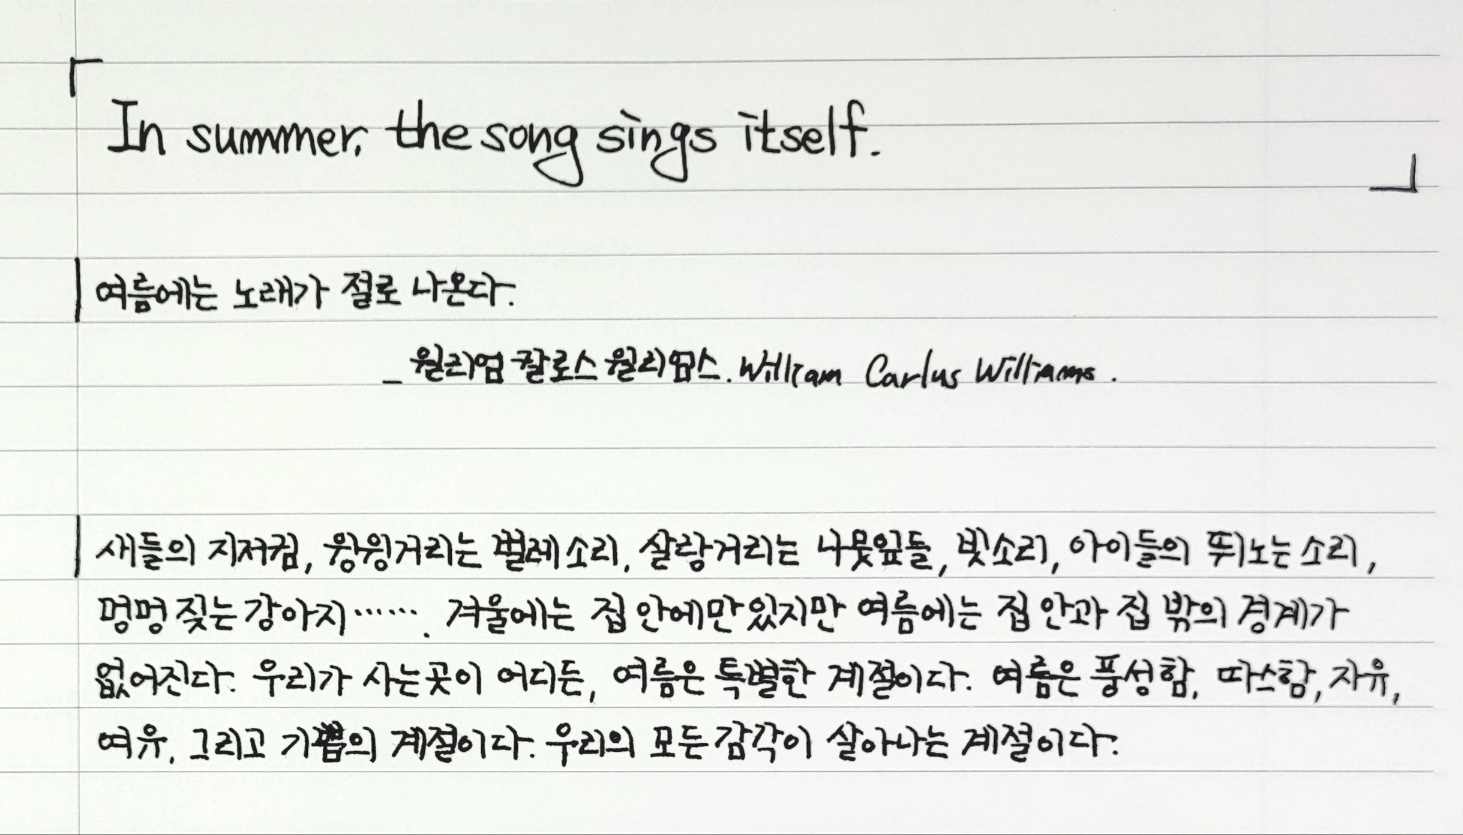 「In summer, the song sings itself.」
여름에는 노래가 절로 나온다.
_ 윌리엄 칼로스 윌리엄스. William Carlus Williams.
새들의 지저귐, 왕윙거리는 벌레소리, 살랑거리는 나뭇잎들, 빗소리, 아이들의 뛰노는 소리,
멍멍 짖는 강아지‥‥‥. 겨울에는 집 안에만 있지만 여름에는 집 안과 집 밖의 경계가
없어진다. 우리가 사는 곳이 어디든, 여름은 특별한 계절이다. 여름은 풍성함, 따스함, 자유,
여유, 그리고 기쁨의 계절이다. 우리의 모든 감각이 살아나는 계절이다.